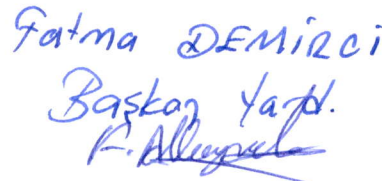 Fatma DEMİRCİ
Başkan Yard.